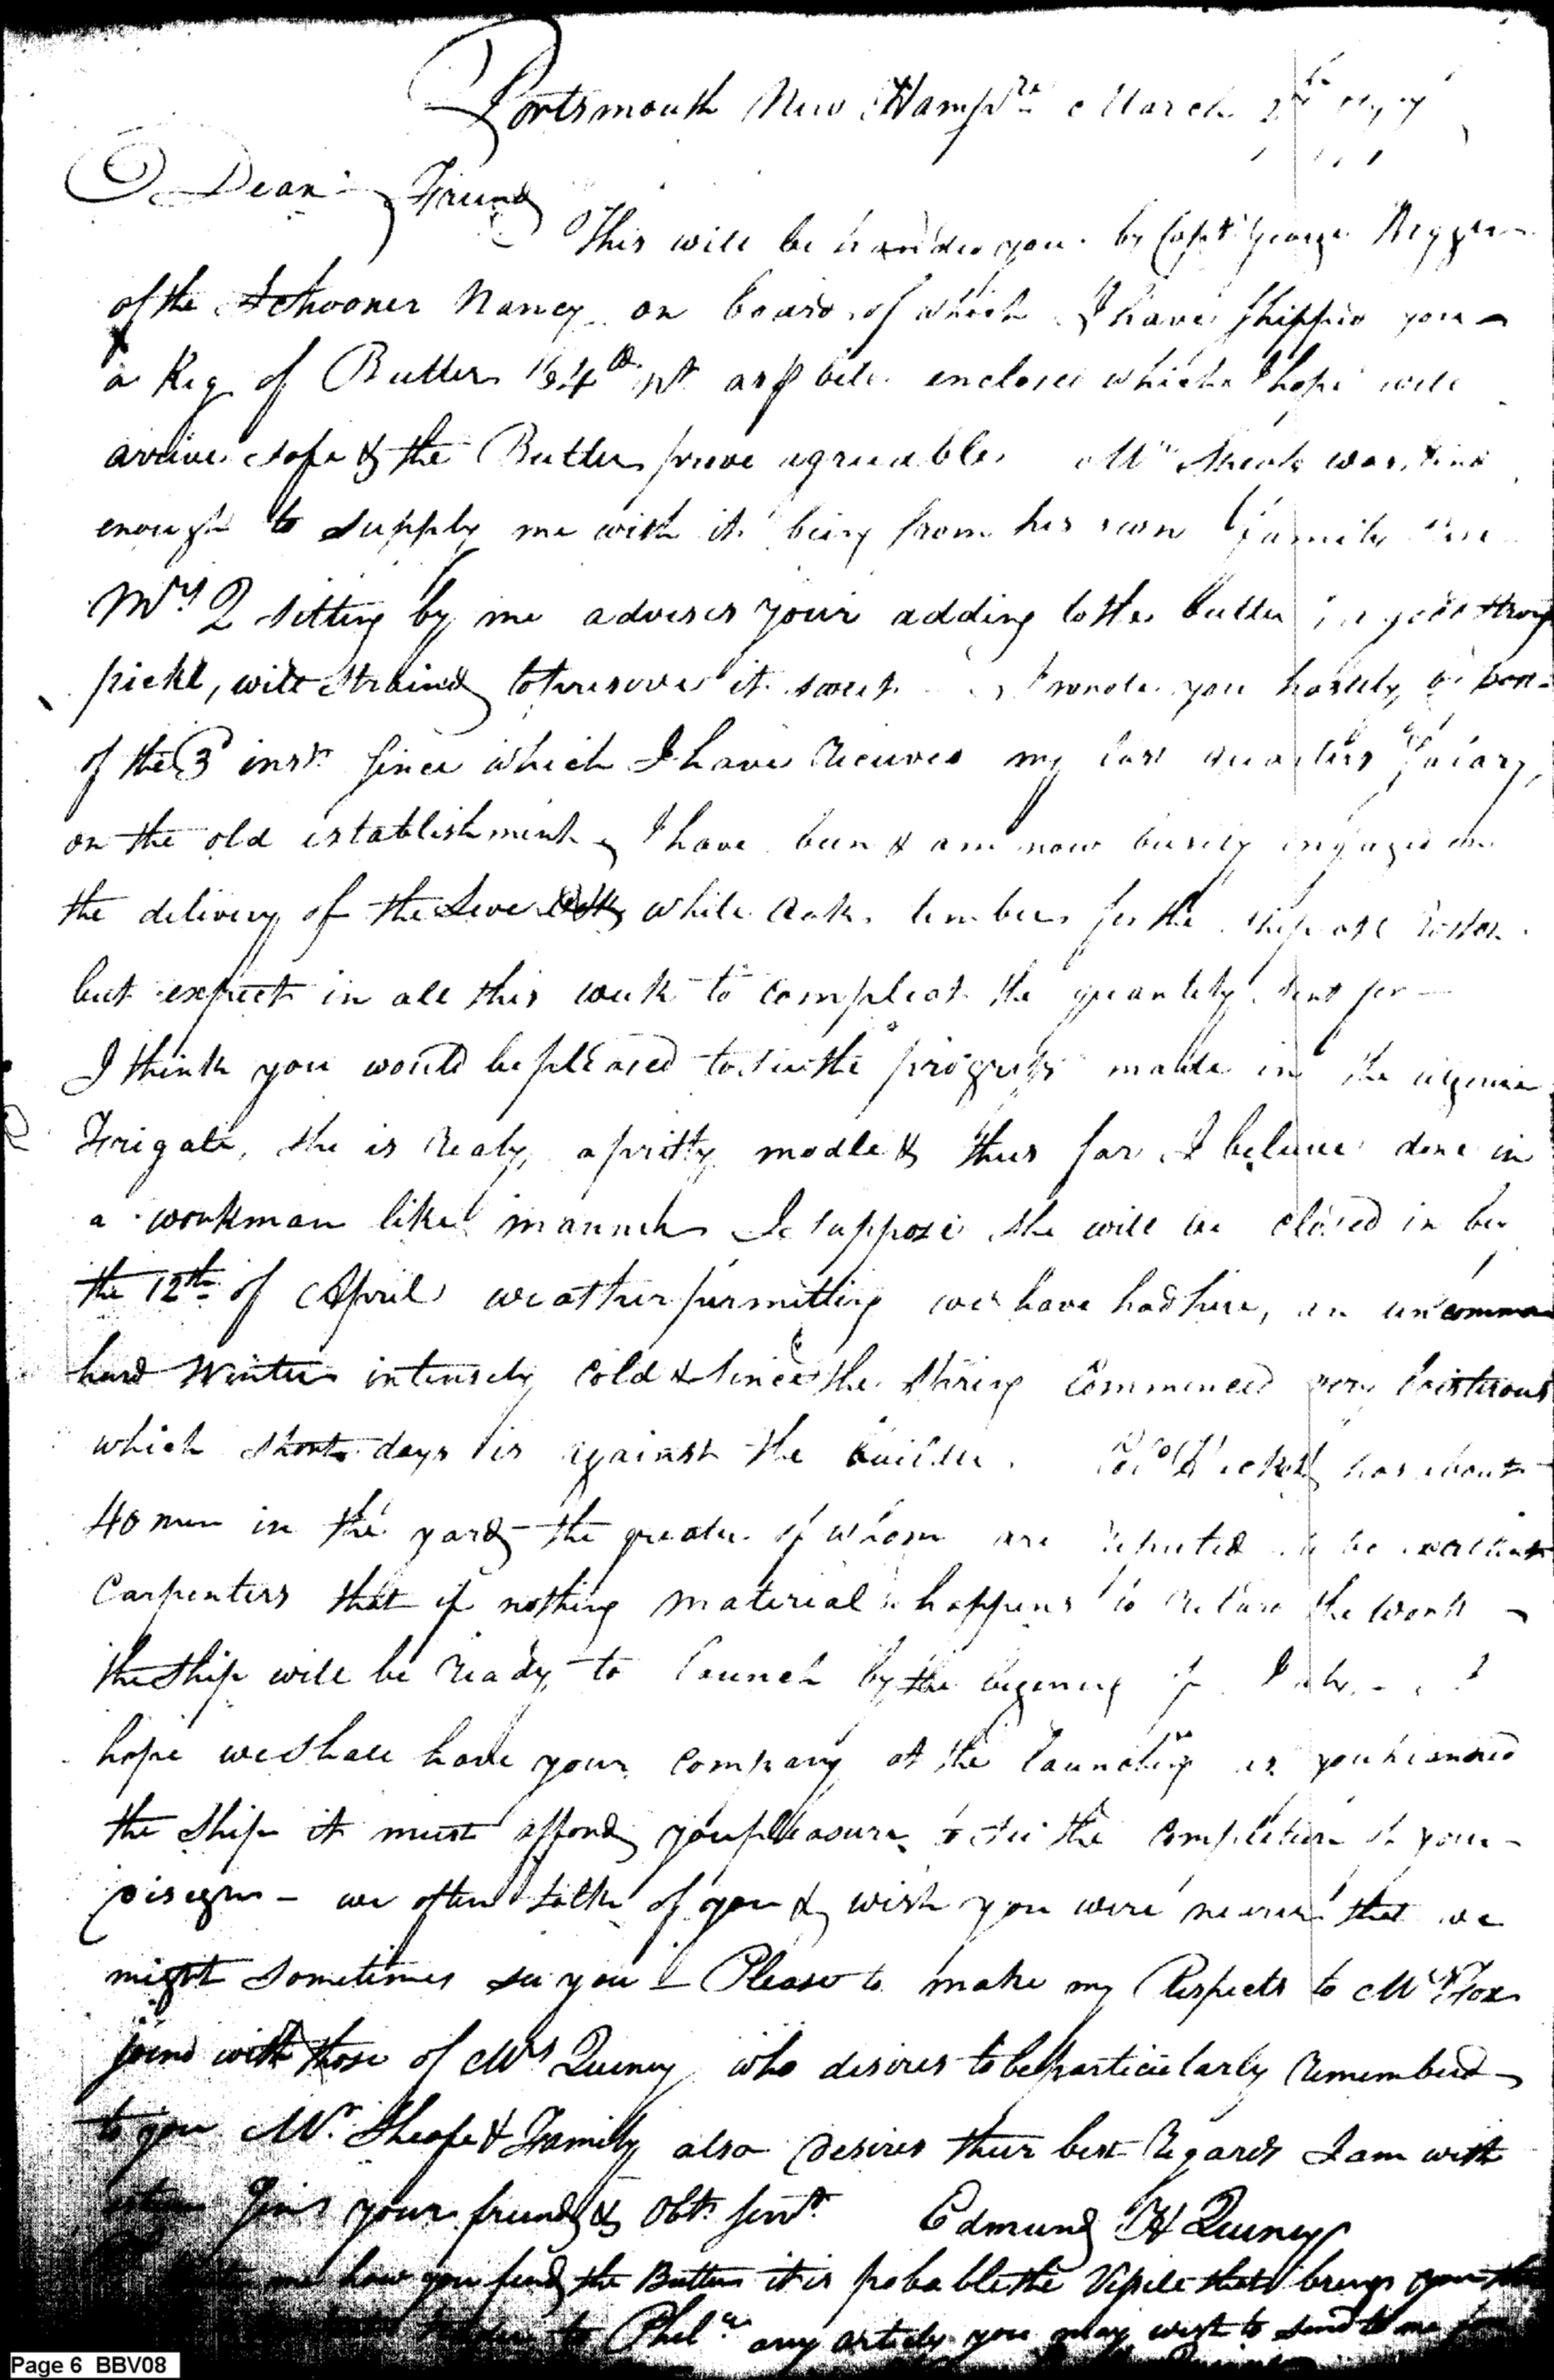 Portsmouth New Hampre March
Dear Friend
This will be handed you by Capt George
of the Schooner Nancy on board of which I have shipped you
a Keg of Butter 184 lb Nt as p bill enclosed which I hope will
arrive safe & the Butter prove agreeable Mr Sheafe was kind
enough to supply me with it being from his own family use
Mrs Q sitting by me advises your adding to the butter a good strong
pickl, will straind to preserve it sweet I wrote you hastely
of the 3d inst since which I have received my last quarters Salary,
on the old establishment I have been & am now busily ingaged in
the delivery of the white oak timber for the ship att Boston
but expect in all this week to compleat the quantity sent for
I think you would be pleased to see the progress made in the
Frigate, she is realy a pritty modle & thus far I beleive done in
a workman like manner I suppose she will be closed in by
the 12th of April weather permitting we have had here, an uncommon
hard Winter intensely cold & since the Spring Commenced very boisterous
which short days is against the builder. Colo Hackett has about
40 men in the yard the greater of whom are reputed to be excellent
Carpenters that if nothing material happens to retard the work
the Ship will be ready to launch by the begening of
hope we shall have your company at the launching as you planned
the Ship it must afford you pleasure to see the completion of your
Disegn - we often talk of you & wish you were nearer that we
might sometimes see you - Please to make my Respects to Mrs Fox
joind with those of Mrs Quincy who desires to be particularly rememberd
to you Mr. Sheafe & Family also desires their best regards I am with
esteem Sir your friend & Obt Servt Edmund H Quincy
me how you find the Butter it is probable the Vessele that brings you
to Phila any article you may wish to send to me
Page 6 BBV08